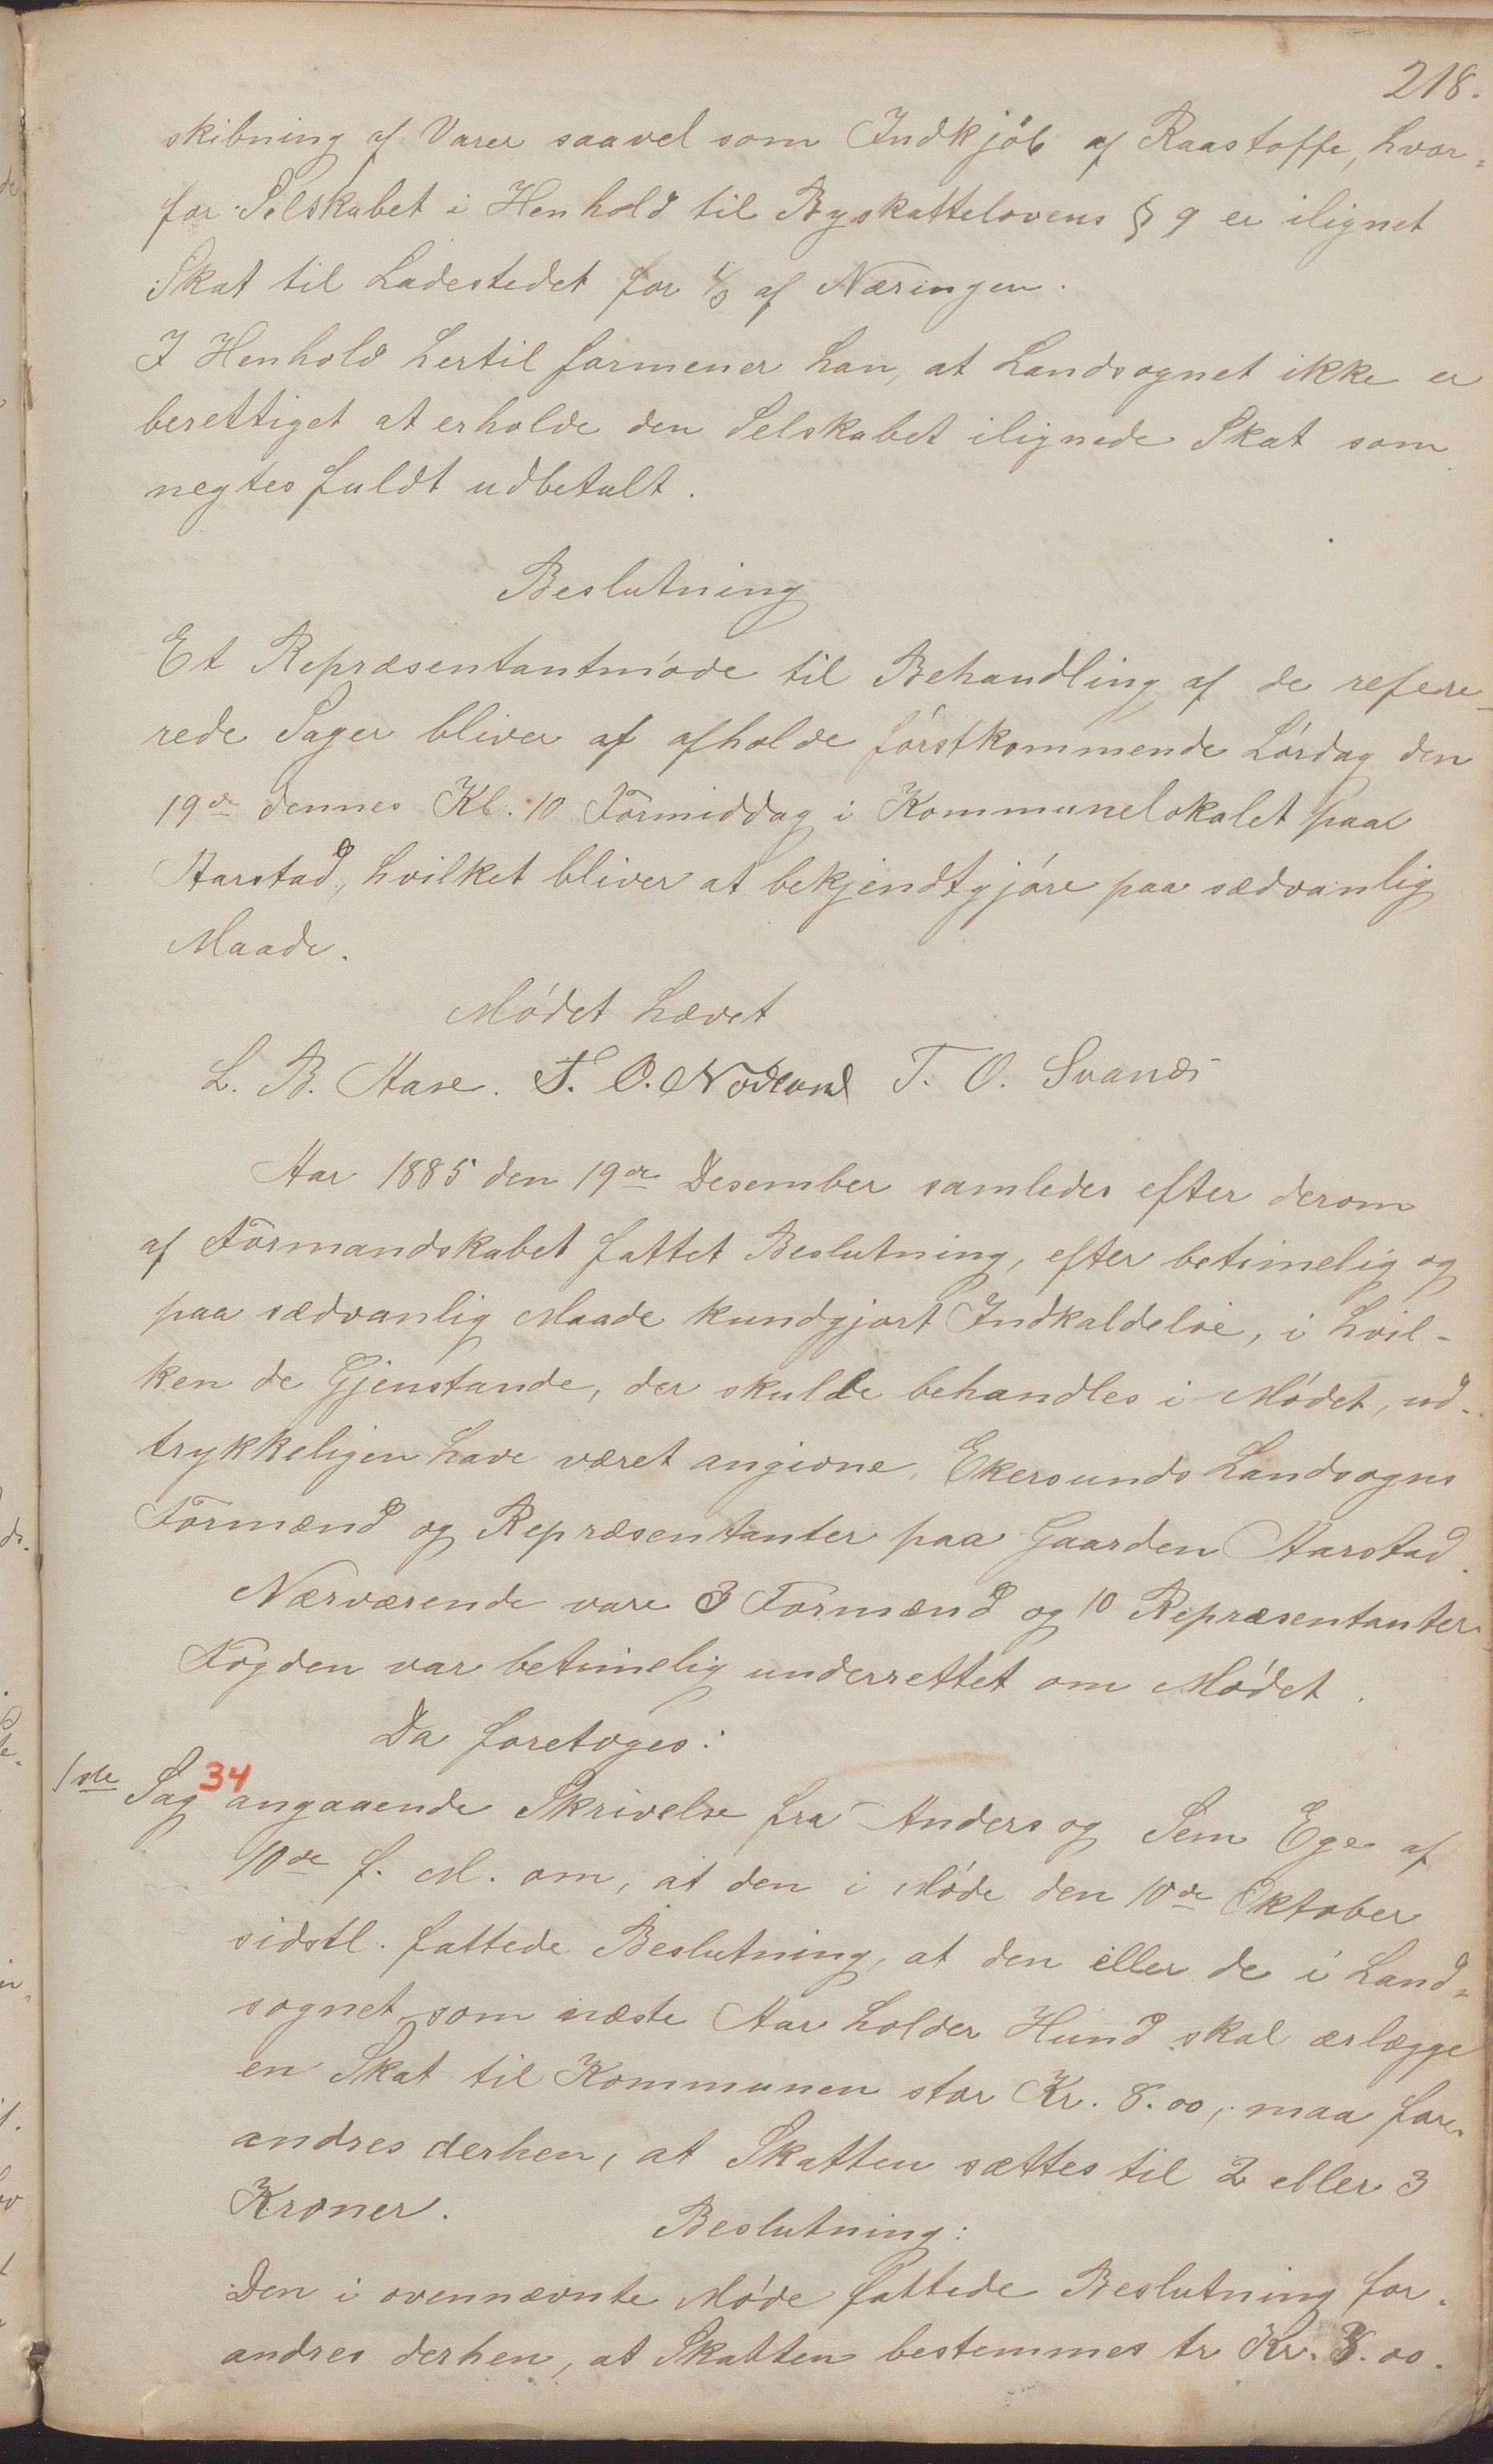 218.
skibning af Varer saavel som Indkjöb af Raastoffe, hvor-
for Selskabet i Henhold til Byskattelovens § 9 er ilignet
Skat til Ladestedet for 1/3 af Næringen.
I Henhold hertil formener han, at Landsognet ikke er
berettiget at erholde den Selskabet ilignede Skat som
negtes fuldt udbetalt.
Beslutning
Et Repræsentantmøde til Behandling af de refere-
rede Sager bliver af afholde förstkommende Lørdag den
19de dennes Kl. 10 Formiddag i Kommunelokalet paa
Aarstad, hvilket bliver at bekjendtgjøre paa sædvanlig
Maade.
Mødet hævet
L. B. Aase. T. O. Nødland T. O. Svanes
Aar 1885 den 19de Desember samledes efter derom
af Formandskabet fattet Beslutning, efter betimelig og
paa sædvanlig Maade kundgjort Indkaldelse, i hvil-
ken de Gjenstande, der skulde behandles i Mødet, ud-
trykkeligen have været angivne, Ekersunds Landsogns
Formænd og Repræsentanter paa Gaarden Aarstad.
Nærværende vare 3 Formænd og 10 Repræsentanter.
Fogden var betimelig underrettet om Mødet.
Da foretoges:
1ste Sag 34 angaaende Skrivelse fra Anders og Sem Ege af
10de f. M. om, at den i Møde den 10de Oktober
sidstl. fattede Beslutning, at den eller de i Land-
sognet, som næste Aar holder Hund skal ærlægge
en Skat til Kommunen stor Kr. 8.00, maa for-
andres derhen, at Skatten sættes til 2 eller 3
Kroner.
Beslutning:
Den i ovennævnte Møde fattede Beslutning for-
andres derhen, at Skatten bestemmes tr Kr. 3.00.